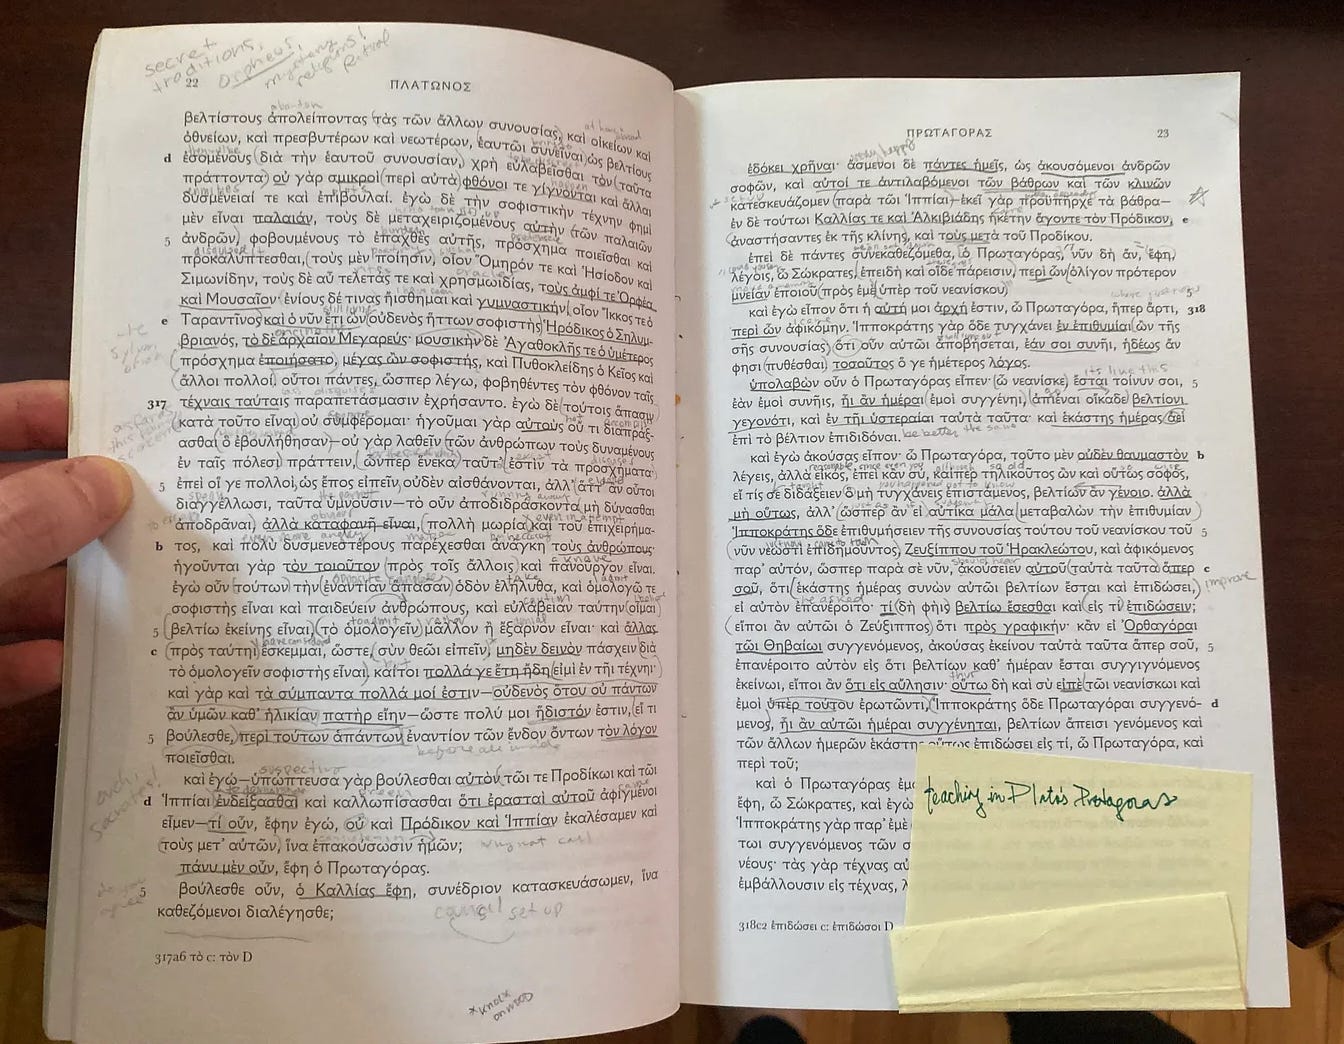 secret
traditions,
Orpheus,
mystery
religions!
Ritual
22 ΠΛΑΤΩΝΟΣ
abandon
βελτίστους ἀπολείποντας τὰς τῶν ἄλλων συνουσίας, καὶ οἰκείων καὶ
ὀθνείων, καὶ πρεσβυτέρων καὶ νεωτέρων, ἑαυτῶι συνεῖναι ὡς βελτίους
d ἐσομένους διὰ τὴν ἑαυτοῦ συνουσίαν, χρὴ εὐλαβεῖσθαι τὸν ταῦτα
πράττοντα· οὐ γὰρ σμικροὶ περὶ αὐτὰ φθόνοι τε γίγνονται καὶ ἄλλαι
δυσμένειαί τε καὶ ἐπιβουλαί. ἐγὼ δὲ τὴν σοφιστικὴν τέχνην φημὶ
μὲν εἶναι παλαιάν, τοὺς δὲ μεταχειριζομένους αὐτὴν τῶν παλαιῶν
5 ἀνδρῶν, φοβουμένους τὸ ἐπαχθὲς αὐτῆς, πρόσχημα ποιεῖσθαι καὶ
προκαλύπτεσθαι, τοὺς μὲν ποίησιν, οἷον Ὅμηρόν τε καὶ Ἡσίοδον καὶ
Σιμωνίδην, τοὺς δὲ αὖ τελετάς τε καὶ χρησμωιδίας, τοὺς ἀμφί τε Ὀρφέα
καὶ Μουσαῖον· ἐνίους δέ τινας ἤισθημαι καὶ γυμναστικήν, οἷον Ἴκκος τε ὁ
e Ταραντῖνος καὶ ὁ νῦν ἔτι ὢν οὐδενὸς ἥττων σοφιστὴς Ἡρόδικος ὁ Σηλυμ-
βριανός, τὸ δὲ ἀρχαῖον Μεγαρεύς· μουσικὴν δὲ Ἀγαθοκλῆς τε ὁ ὑμέτερος
πρόσχημα ἐποιήσατο, μέγας ὢν σοφιστής, καὶ Πυθοκλείδης ὁ Κεῖος καὶ
ἄλλοι πολλοί. οὗτοι πάντες, ὥσπερ λέγω, φοβηθέντες τὸν φθόνον ταῖς
317 τέχναις ταύταις παραπετάσμασιν ἐχρήσαντο. ἐγὼ δὲ τούτοις ἅπασιν
κατὰ τοῦτο εἶναι οὐ συμφέρομαι· ἡγοῦμαι γὰρ αὐτοὺς οὔ τι διαπράξ-
ασθαι ὃ ἐβουλήθησαν—οὐ γὰρ λαθεῖν τῶν ἀνθρώπων τοὺς δυναμένους
ἐν ταῖς πόλεσι πράττειν, ὧνπερ ἕνεκα ταῦτ' ἐστὶν τὰ προσχήματα·
5 ἐπεὶ οἵ γε πολλοὶ ὡς ἔπος εἰπεῖν οὐδὲν αἰσθάνονται, ἀλλ' ἅττ' ἂν οὗτοι
διαγγέλλωσι, ταῦτα ὑμνοῦσιν—τὸ οὖν ἀποδιδράσκοντα μὴ δύνασθαι
ἀποδρᾶναι, ἀλλὰ καταφανῆ εἶναι, πολλὴ μωρία καὶ τοῦ ἐπιχειρήμα-
b τος, καὶ πολὺ δυσμενεστέρους παρέχεσθαι ἀνάγκη τοὺς ἀνθρώπους·
ἡγοῦνται γὰρ τὸν τοιοῦτον πρὸς τοῖς ἄλλοις καὶ πανοῦργον εἶναι.
ἐγὼ οὖν τούτων τὴν ἐναντίαν ἅπασαν ὁδὸν ἐλήλυθα, καὶ ὁμολογῶ τε
σοφιστὴς εἶναι καὶ παιδεύειν ἀνθρώπους, καὶ εὐλάβειαν ταύτην οἶμαι
5 βελτίω ἐκείνης εἶναι, τὸ ὁμολογεῖν μᾶλλον ἢ ἔξαρνον εἶναι· καὶ ἄλλας
c πρὸς ταύτηι ἔσκεμμαι, ὥστε, σὺν θεῶι εἰπεῖν, μηδὲν δεινὸν πάσχειν διὰ
τὸ ὁμολογεῖν σοφιστὴς εἶναι. καίτοι πολλά γε ἔτη ἤδη εἰμὶ ἐν τῆι τέχνηι·
καὶ γὰρ καὶ τὰ σύμπαντα πολλά μοί ἐστιν—οὐδενὸς ὅτου οὐ πάντων
ἂν ὑμῶν καθ' ἡλικίαν πατὴρ εἴην—ὥστε πολύ μοι ἥδιστόν ἐστιν, εἴ τι
5 βούλεσθε, περὶ τούτων ἁπάντων ἐναντίον τῶν ἔνδον ὄντων τὸν λόγον
ποιεῖσθαι.
before all inside
suspecting
καὶ ἐγώ—ὑπώπτευσα γὰρ βούλεσθαι αὐτὸν τῶι τε Προδίκωι καὶ τῶι
d Ἱππίαι ἐνδείξασθαι καὶ καλλωπίσασθαι ὅτι ἐρασταὶ αὐτοῦ ἀφιγμένοι
εἶμεν—τί οὖν, ἔφην ἐγώ, οὐ καὶ Πρόδικον καὶ Ἱππίαν ἐκαλέσαμεν καὶ
τοὺς μετ' αὐτῶν, ἵνα ἐπακούσωσιν ἡμῶν;
why not call
πάνυ μὲν οὖν, ἔφη ὁ Πρωταγόρας.
5 βούλεσθε οὖν, ὁ Καλλίας ἔφη, συνέδριον κατασκευάσωμεν, ἵνα
καθεζόμενοι διαλέγησθε;
council set up
ouch,
Socrates!
317a6 τὸ c: τὸν D
*knock
on wood
ΠΡΩΤΑΓΟΡΑΣ 23
ἐδόκει χρῆναι· ἅσμενοι δὲ πάντες ἡμεῖς, ὡς ἀκουσόμενοι ἀνδρῶν
σοφῶν, καὶ αὐτοί τε ἀντιλαβόμενοι τῶν βάθρων καὶ τῶν κλινῶν
κατεσκευάζομεν παρὰ τῶι Ἱππίαι—ἐκεῖ γὰρ προϋπῆρχε τὰ βάθρα—
ἐν δὲ τούτωι Καλλίας τε καὶ Ἀλκιβιάδης ἡκέτην ἄγοντε τὸν Πρόδικον, e
ἀναστήσαντες ἐκ τῆς κλίνης, καὶ τοὺς μετὰ τοῦ Προδίκου.
ἐπεὶ δὲ πάντες συνεκαθεζόμεθα, ὁ Πρωταγόρας, νῦν δὴ ἄν, ἔφη,
λέγοις, ὦ Σώκρατες, ἐπειδὴ καὶ οἵδε πάρεισιν, περὶ ὧν ὀλίγον πρότερον
μνείαν ἐποιοῦ πρὸς ἐμὲ ὑπὲρ τοῦ νεανίσκου. 5
καὶ ἐγὼ εἶπον ὅτι ἡ αὐτή μοι ἀρχή ἐστιν, ὦ Πρωταγόρα, ἥπερ ἄρτι, 318
περὶ ὧν ἀφικόμην. Ἱπποκράτης γὰρ ὅδε τυγχάνει ἐν ἐπιθυμίαι ὢν τῆς
σῆς συνουσίας· ὅτι οὖν αὐτῶι ἀποβήσεται, ἐάν σοι συνῆι, ἡδέως ἄν
φησι πυθέσθαι. τοσοῦτος ὅ γε ἡμέτερος λόγος.
it's like this
ὑπολαβὼν οὖν ὁ Πρωταγόρας εἶπεν· ὦ νεανίσκε, ἔσται τοίνυν σοι, 5
ἐὰν ἐμοὶ συνῆις, ἧι ἂν ἡμέραι ἐμοὶ συγγένηι, ἀπιέναι οἴκαδε βελτίονι
γεγονότι, καὶ ἐν τῆι ὑστεραίαι ταὐτὰ ταῦτα· καὶ ἑκάστης ἡμέρας ἀεὶ
ἐπὶ τὸ βέλτιον ἐπιδιδόναι.
καὶ ἐγὼ ἀκούσας εἶπον· ὦ Πρωταγόρα, τοῦτο μὲν οὐδὲν θαυμαστὸν b
λέγεις, ἀλλὰ εἰκός, ἐπεὶ κἂν σύ, καίπερ τηλικοῦτος ὢν καὶ οὕτως σοφός,
εἴ τίς σε διδάξειεν ὃ μὴ τυγχάνεις ἐπιστάμενος, βελτίων ἂν γένοιο. ἀλλὰ
μὴ οὕτως, ἀλλ' ὥσπερ ἂν εἰ αὐτίκα μάλα μεταβαλὼν τὴν ἐπιθυμίαν
Ἱπποκράτης ὅδε ἐπιθυμήσειεν τῆς συνουσίας τούτου τοῦ νεανίσκου τοῦ 5
νῦν νεωστὶ ἐπιδημοῦντος, Ζευξίππου τοῦ Ἡρακλεώτου, καὶ ἀφικόμενος
παρ' αὐτόν, ὥσπερ παρὰ σὲ νῦν, ἀκούσειεν αὐτοῦ ταὐτὰ ταῦτα ἅπερ c
σοῦ, ὅτι ἑκάστης ἡμέρας συνὼν αὐτῶι βελτίων ἔσται καὶ ἐπιδώσει,
improve
εἰ αὐτὸν ἐπανέροιτο· τί δὴ φὴις βελτίω ἔσεσθαι καὶ εἰς τί ἐπιδώσειν;
εἴποι ἂν αὐτῶι ὁ Ζεύξιππος ὅτι πρὸς γραφικήν· κἂν εἰ Ὀρθαγόραι
τῶι Θηβαίωι συγγενόμενος, ἀκούσας ἐκείνου ταὐτὰ ταῦτα ἅπερ σοῦ, 5
ἐπανέροιτο αὐτὸν εἰς ὅτι βελτίων καθ' ἡμέραν ἔσται συγγιγνόμενος
ἐκείνωι, εἴποι ἂν ὅτι εἰς αὔλησιν· οὕτω δὴ καὶ σὺ εἰπὲ τῶι νεανίσκωι καὶ
ἐμοὶ ὑπὲρ τούτου ἐρωτῶντι, Ἱπποκράτης ὅδε Πρωταγόραι συγγενό- d
μενος, ἧι ἂν αὐτῶι ἡμέραι συγγένηται, βελτίων ἄπεισι γενόμενος καὶ
τῶν ἄλλων ἡμερῶν ἑκάστης οὕτως ἐπιδώσει εἰς τί, ὦ Πρωταγόρα, καὶ
περὶ τοῦ;
καὶ ὁ Πρωταγόρας ἐμοῦ
ἔφη, ὦ Σώκρατες, καὶ ἐγὼ
Ἱπποκράτης γὰρ παρ' ἐμὲ
τωι συγγενόμενος τῶν σ
νέους· τὰς γὰρ τέχνας αὐ
ἐμβάλλουσιν εἰς τέχνας, λ
318c2 ἐπιδώσει c: ἐπιδώσοι D
teaching in Plato's Protagoras